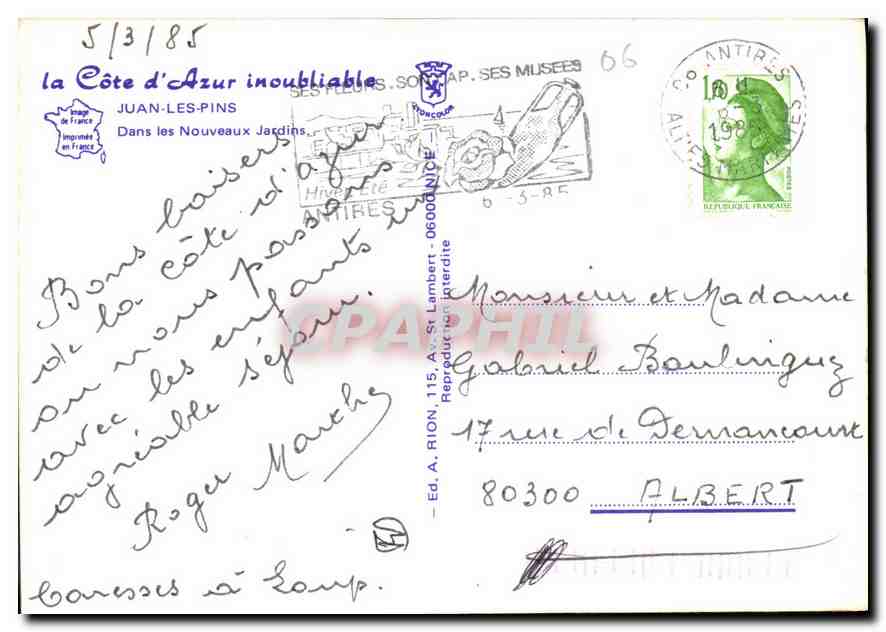 5/3/85
la Côte d'Azur inoubliable
JUAN-LES-PINS
Dans les Nouveaux Jardins
Image
de France
Imprimée
en France
LYONCOLOR
SES FLEURS. SON CAP. SES MUSEES
Hiver Eté
ANTIBES
6-3-85
06
06 ANTIBES
1985
ALPES MARITIMES
1,80
REPUBLIQUE FRANÇAISE
POSTES
Bons baisers
de la côte d'azur
ou nous passons
avec les enfants un
agréable séjour.
Roger Marthe
Caresses à Loup.
— Ed. A. RION, 115, Av. St Lambert - 06000 NICE
Reproduction interdite
Monsieur et Madame
Gabriel Boulinguez
17 rue de Dernancourt
80300 ALBERT
CPAPHIL